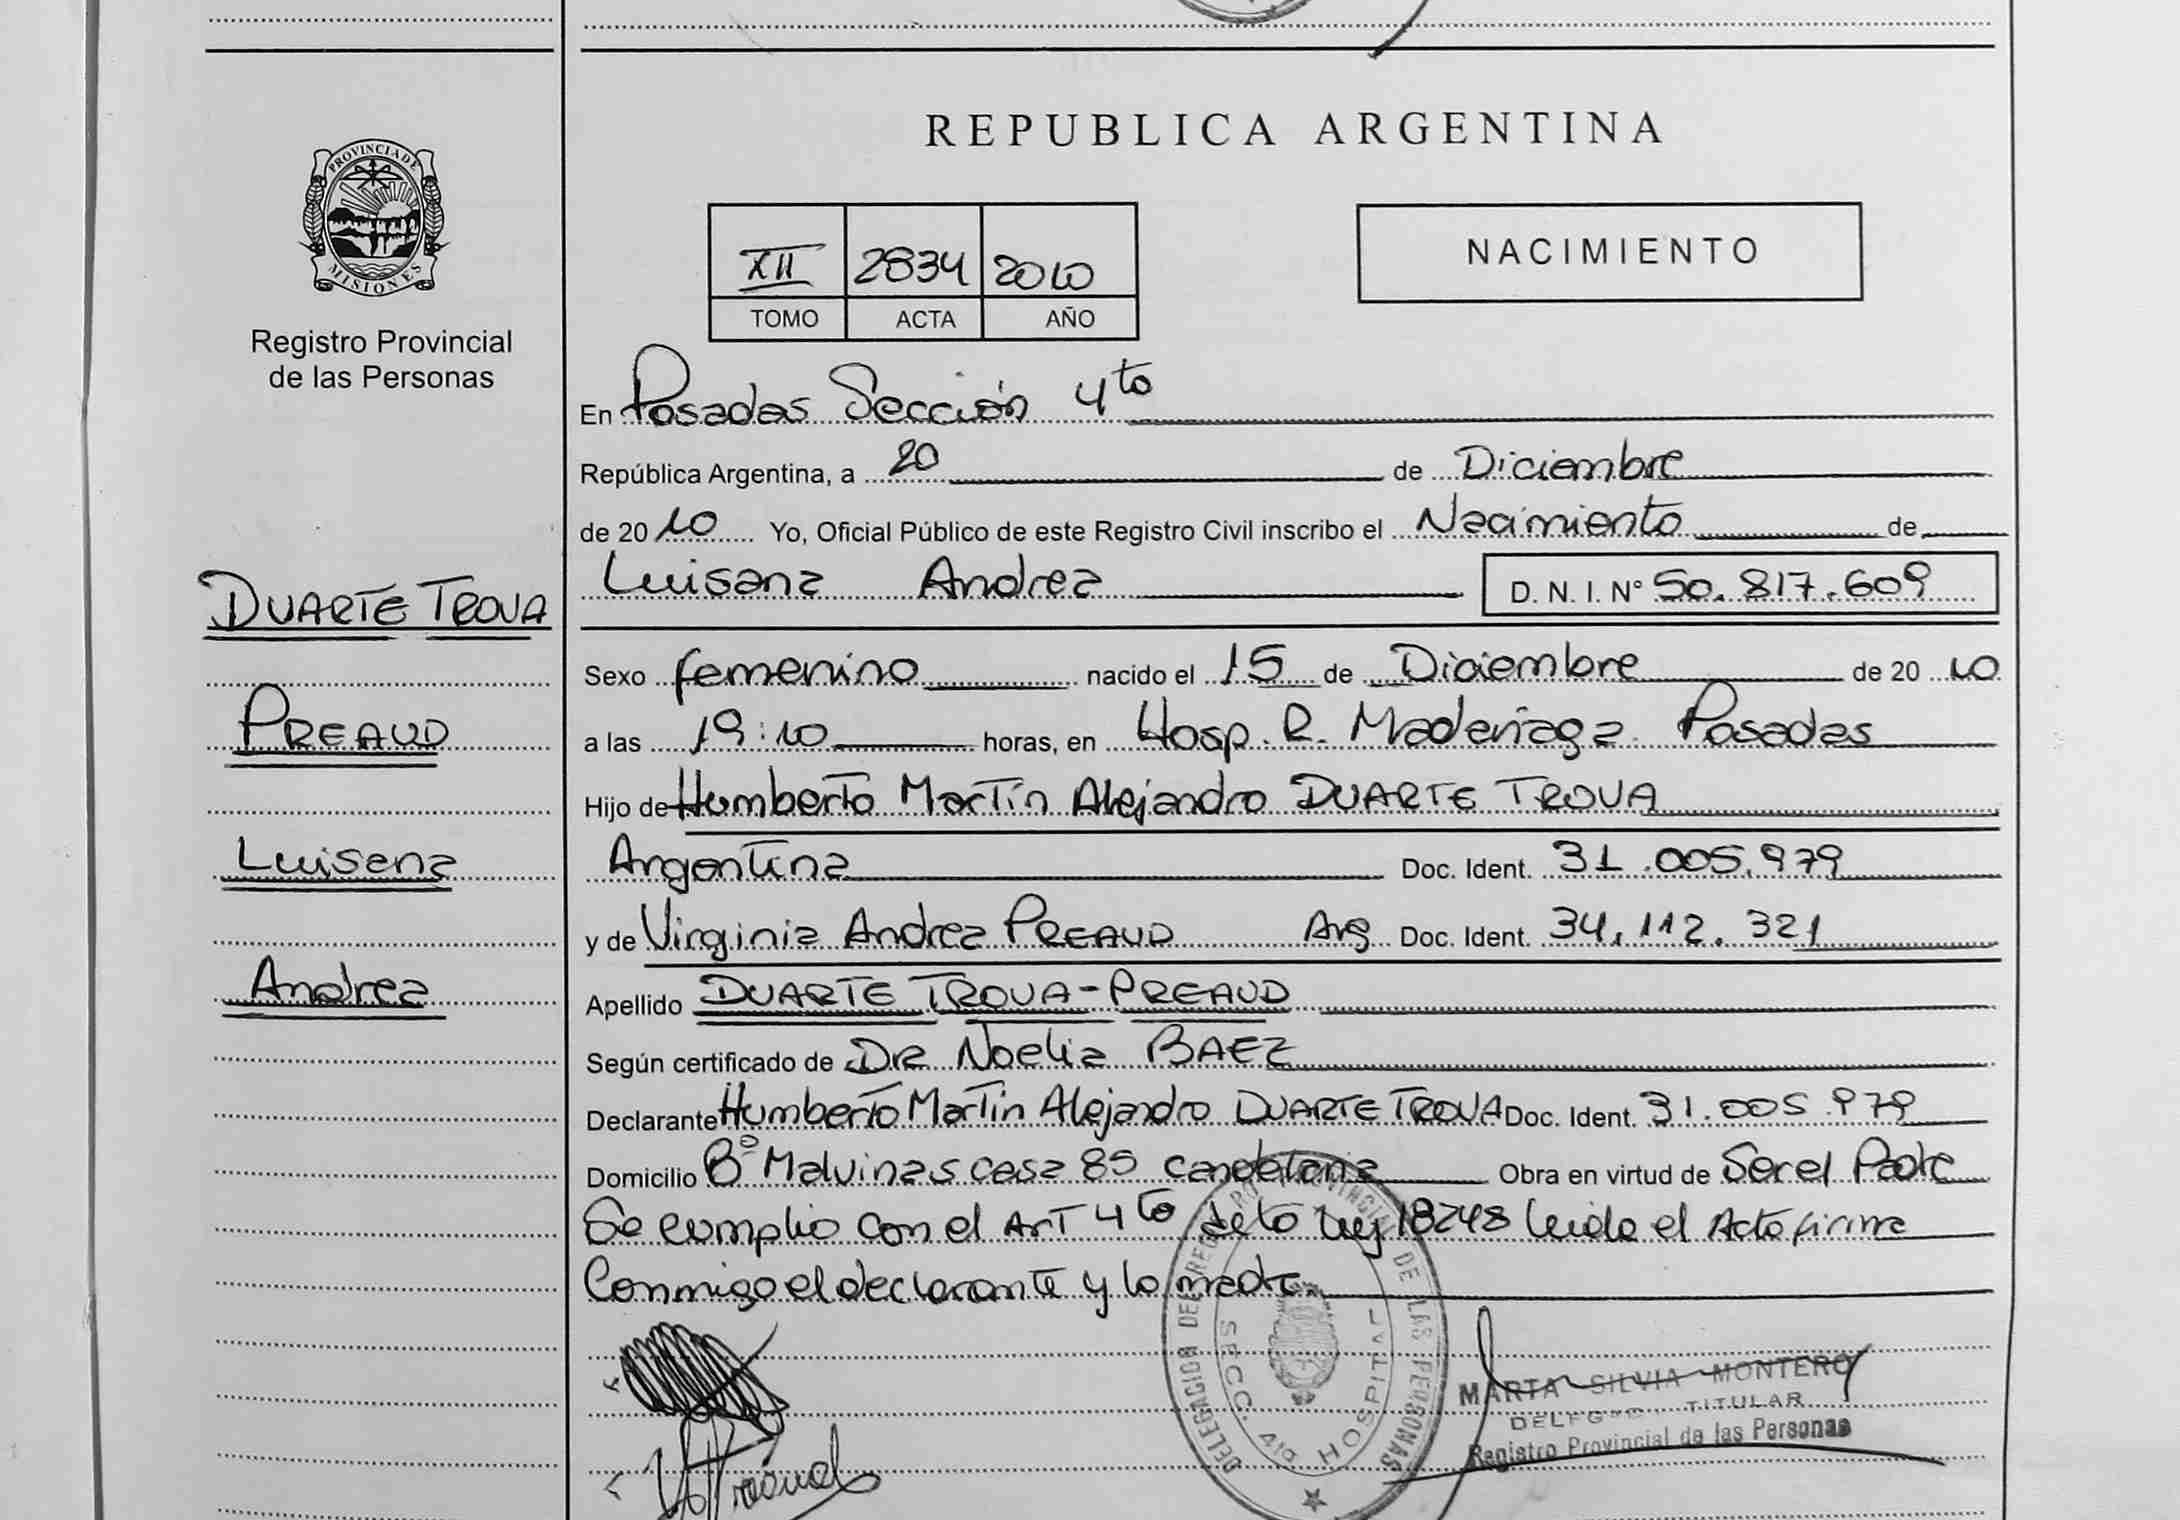 REPUBLICA ARGENTINA
PROVINCIA DE
MISIONES
Registro Provincial
de las Personas
XII 2834 2010
TOMO ACTA AÑO
NACIMIENTO
En Posadas Sección 4to
República Argentina, a 20 de Diciembre
de 2010 Yo, Oficial Público de este Registro Civil inscribo el Nacimiento de
Luisana Andrea D. N. I. N° 50.817.609
DUARTE TROVA
PREAUD
Luisana
Andrea
Sexo femenino nacido el 15 de Diciembre de 2010
a las 19:10 horas, en Hosp. R. Madariaga Posadas
Hijo de Humberto Martín Alejandro DUARTE TROVA
Argentina Doc. Ident. 31.005.979
y de Virginia Andrea PREAUD Arg Doc. Ident. 34.112.321
Apellido DUARTE TROVA-PREAUD
Según certificado de DRA Noelia BAEZ
Declarante Humberto Martin Alejandro DUARTE TROVA Doc. Ident. 31.005.979
Domicilio B° Malvinas casa 85 candelaria Obra en virtud de Ser el Padre
Se cumplio con el ArT 4to de la Ley 18248 leida el Acta firma
Conmigo el declarante y la madre
DELEGACION DEL REG PROVINCIAL DE LAS PERSONAS
SECC. 4ta HOSPITAL
MARTA SILVIA MONTERO
TITULAR
Registro Provincial de las Personas